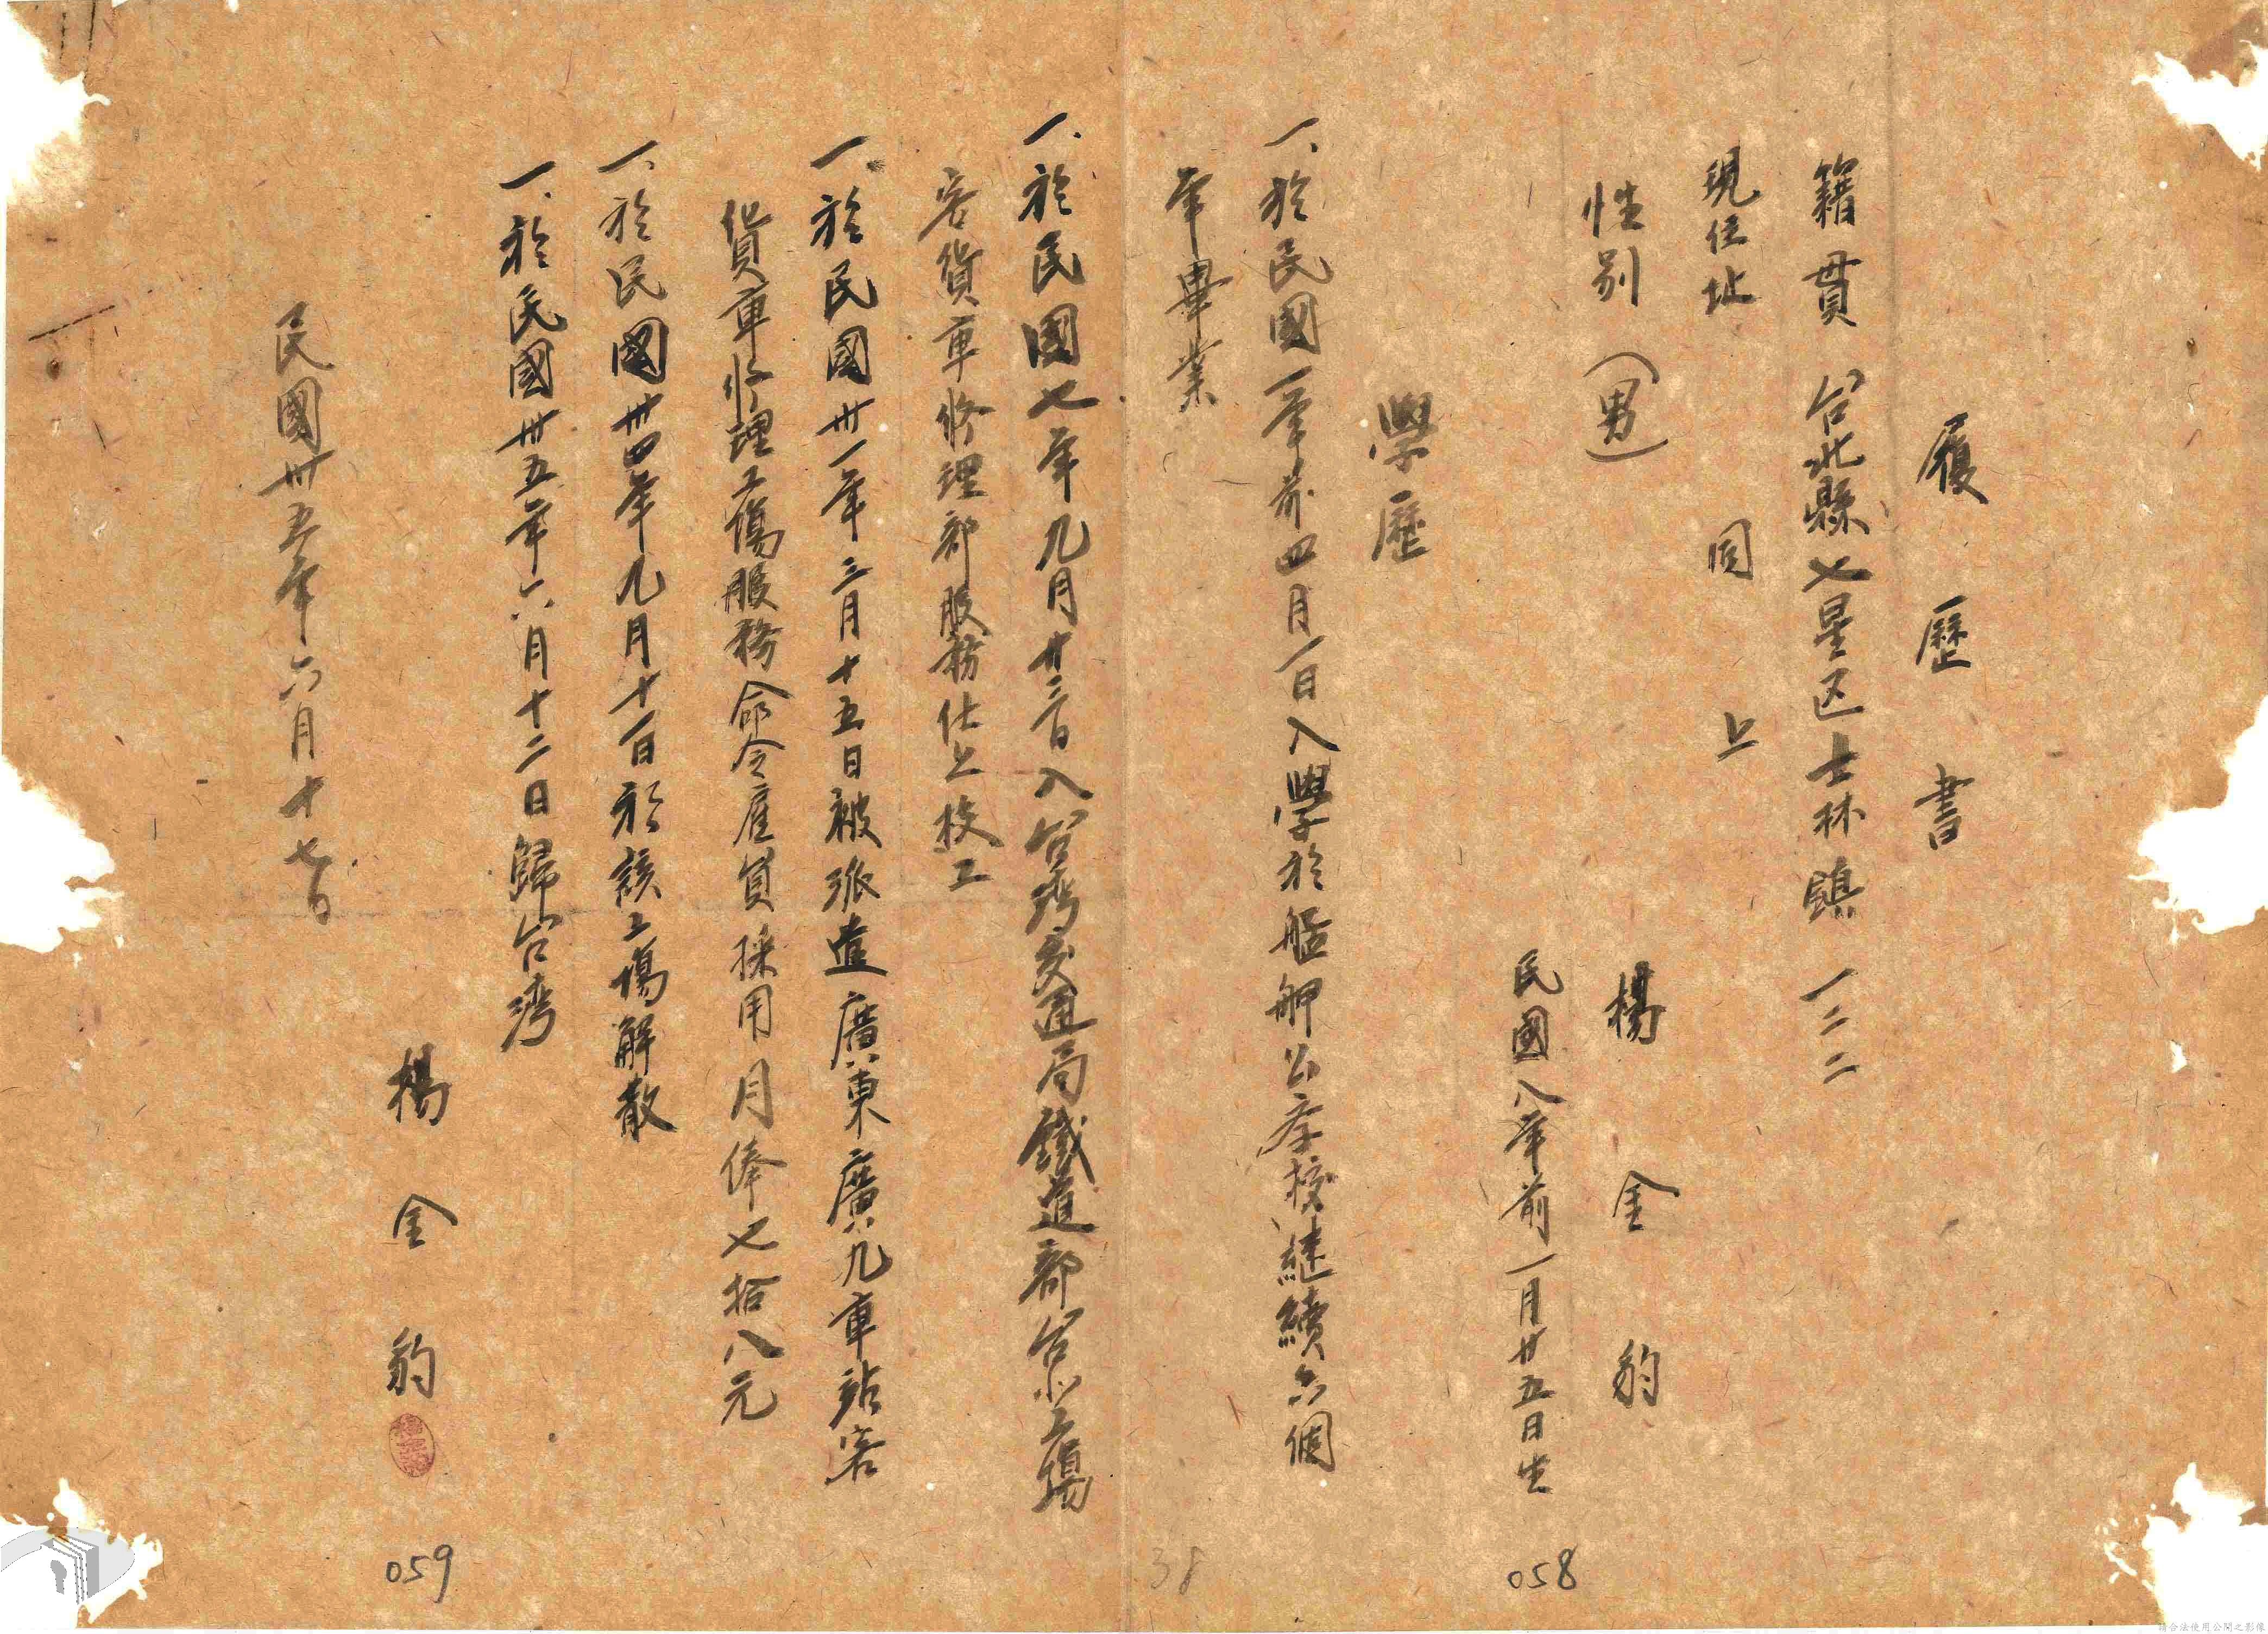 履歷書
籍貫 台北縣七星区士林鎮 一二二
現住址 同上
性別（男） 楊金豹
民國八年前一月廿五日生
學歷
一、於民國一年前四月一日入學於艋舺公学校継續六個
年畢業
一、於民國七年九月廿三日入台湾交通局鐵道部台北工場
客貨車修理部服務仕上技工
一、於民國卅一年三月十五日被派遣廣東廣九車站客
貨車修理工場服務命令雇員採用月俸七拾八元
一、於民國卅四年九月十一日於該工場解散
一、於民國卅五年六月十二日歸台湾
楊金豹
民國卅五年六月十七日
058
38
059
請合法使用公開之影像